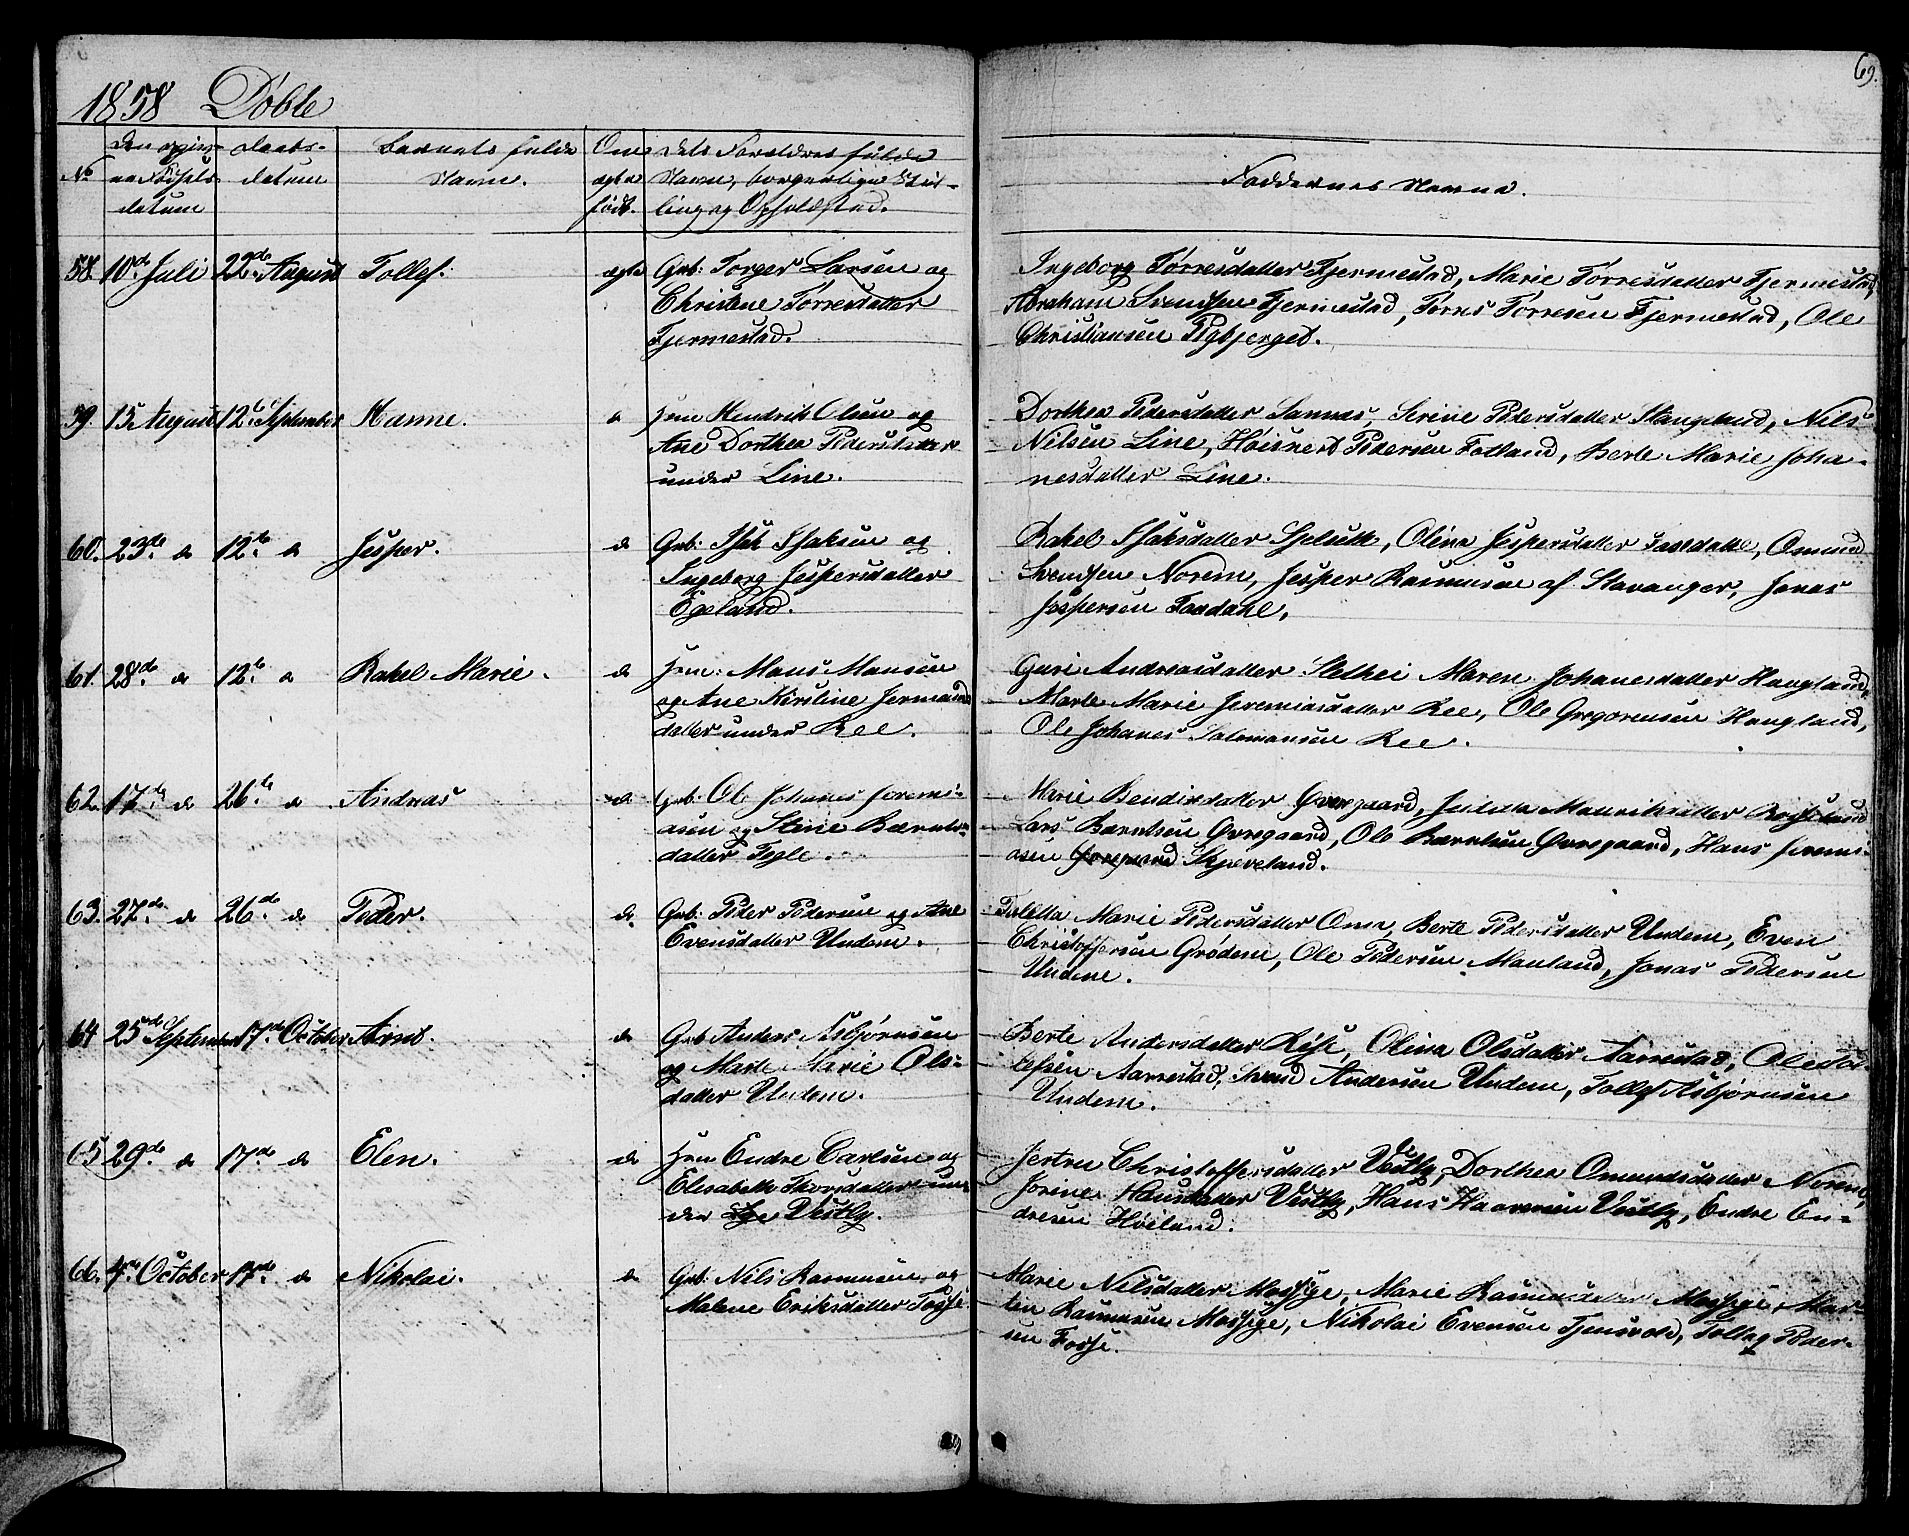 69.
1858 Döbte
No
Den opgivne Födsels datum
Daabs-datum
Barnets fulde Navn.
Om ægte födt.
Dets Forældres fulde Navn, borgerlige Stilling og Opholdsted.
Faddernes Navne.
58. 10de Juli 22de August Tollef. ægte Gbr: Torger Larsen og
Christene Törresdatter
Tjermestad.
Ingeborg Törresdatter Tjermestad, Marie Törresdatter Tjermestad,
Abraham Svendsen Tjermestad, Törres Törresen Tjermestad, Ole
Christiansen
59. 15 August 12te September Hanne. Hendrik Olsen og
Ane Dorthea Pedersdatter
under Line.
Dorthea Pedersdatter Serine Pedersdatter Stangeland, Nils
Nilsen Line, Pedersen Fotland, Berte Marie Joha-
nesdatter Line.
60. 23de d 12te d Jesper. d Gbr: Isak Isaksen og
Ingeborg Jespersdatter
Egeland.
Rakel Isaksdatter Olina Jespersdatter Omund
Svendsen Norem, Jesper Rasmussen af Stavanger, Jonas
Jespersen Taxdahl.
61. 28de d 12te d Rakel Marie. d Mans Mansen
og Ane Kirstine
datter under Ree.
Guri Andreasdatter Slethei Maren Johanesdatter Haugland,
Marte Marie Jeremiasdatter Ree, Ole Gregoriusen Haugland,
Ole Johanes Salomonsen Ree.
62. 17de d 26de d Andreas d Gbr: Ole Johanes Jeremi-
asen og Stine Bærnts-
datter Tegle.
Marie Bendixdatter Övregaard,
Lars Bærntsen Övregaard, Ole Bærntsen Övregaard, Hans Jeremi-
asen Skjæveland.
63. 27de d 26de d Peder. d Gbr: Peder Pedersen og Ane
Evensdatter Undem.
Taletta Marie Pedersdatter Berte Pedersdatter Undem, Even
Christoffersen Grödem, Ole Pedersen Jonas Pedersen
Undem.
64 25de September 17de October Arnt. d Gbr Anders Asbjörnsen
og Marte Marie Ols-
datter Undem.
Berte Andersdatter Olina Olsdatter Aarrestad, Ole
Aarrestad, Svend Andersen Undem, Tollef Asbjörnsen
Undem.
65 29de d 17de d Elen. d Endre Carlsen og
Elisabeth un-
der Vestly.
Jertru Christoffersdatter Vestly, Dorthea Omundsdatter Norem,
Jorine Hansdatter Vestly, Hans Vestly, Endre En-
dresen Höiland.
66. 4de October 17de d Nikolai. d Gbr: Nils Rasmusen og
Malene Eriksdatter Fosse
Marie Nilsdatter Mossige, Marie Rasmusdatter Mossige, Mar-
ten Rasmusen Mossige, Nikolai Evensen Tollag Peder-
sen Fosse.